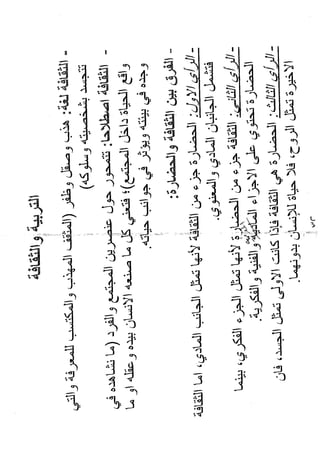 التربية والثقافة
- الثقافة لغة: هذب وصقل وظفر (المثقف المهذب والمكتسب للمعرفة والتي
تتجسد بشخصيته وسلوكه)
- الثقافة اصطلاحا: تتمحور حول عنصرين المجتمع والفرد (ما نشاهده في
واقع الحياة داخل المجتمع)؛ فتعني كل ما صنعه الانسان بيده و عقله او ما
وجده في بيئته ويؤثر في جوانب حياته.
- الفرق بين الثقافة والحضارة:
- الرأي الأول: الحضارة جزء من الثقافة لأنها تمثل الجانب المادي، اما الثقافة
فتشمل الجانبان المادي والمعنوي.
- الرأي الثاني: الثقافة جزء من الحضارة لأنها تمثل الجزء الفكري، بينما
الحضارة تحتوي على الاجزاء المادية والفنية والفكرية.
- الرأي الثالث: الحضارة هي الثقافة فإذا كانت الاولى تمثل الجسد، فان
الاخيرة تمثل الروح، فلا حياة للإنسان بدونهما.